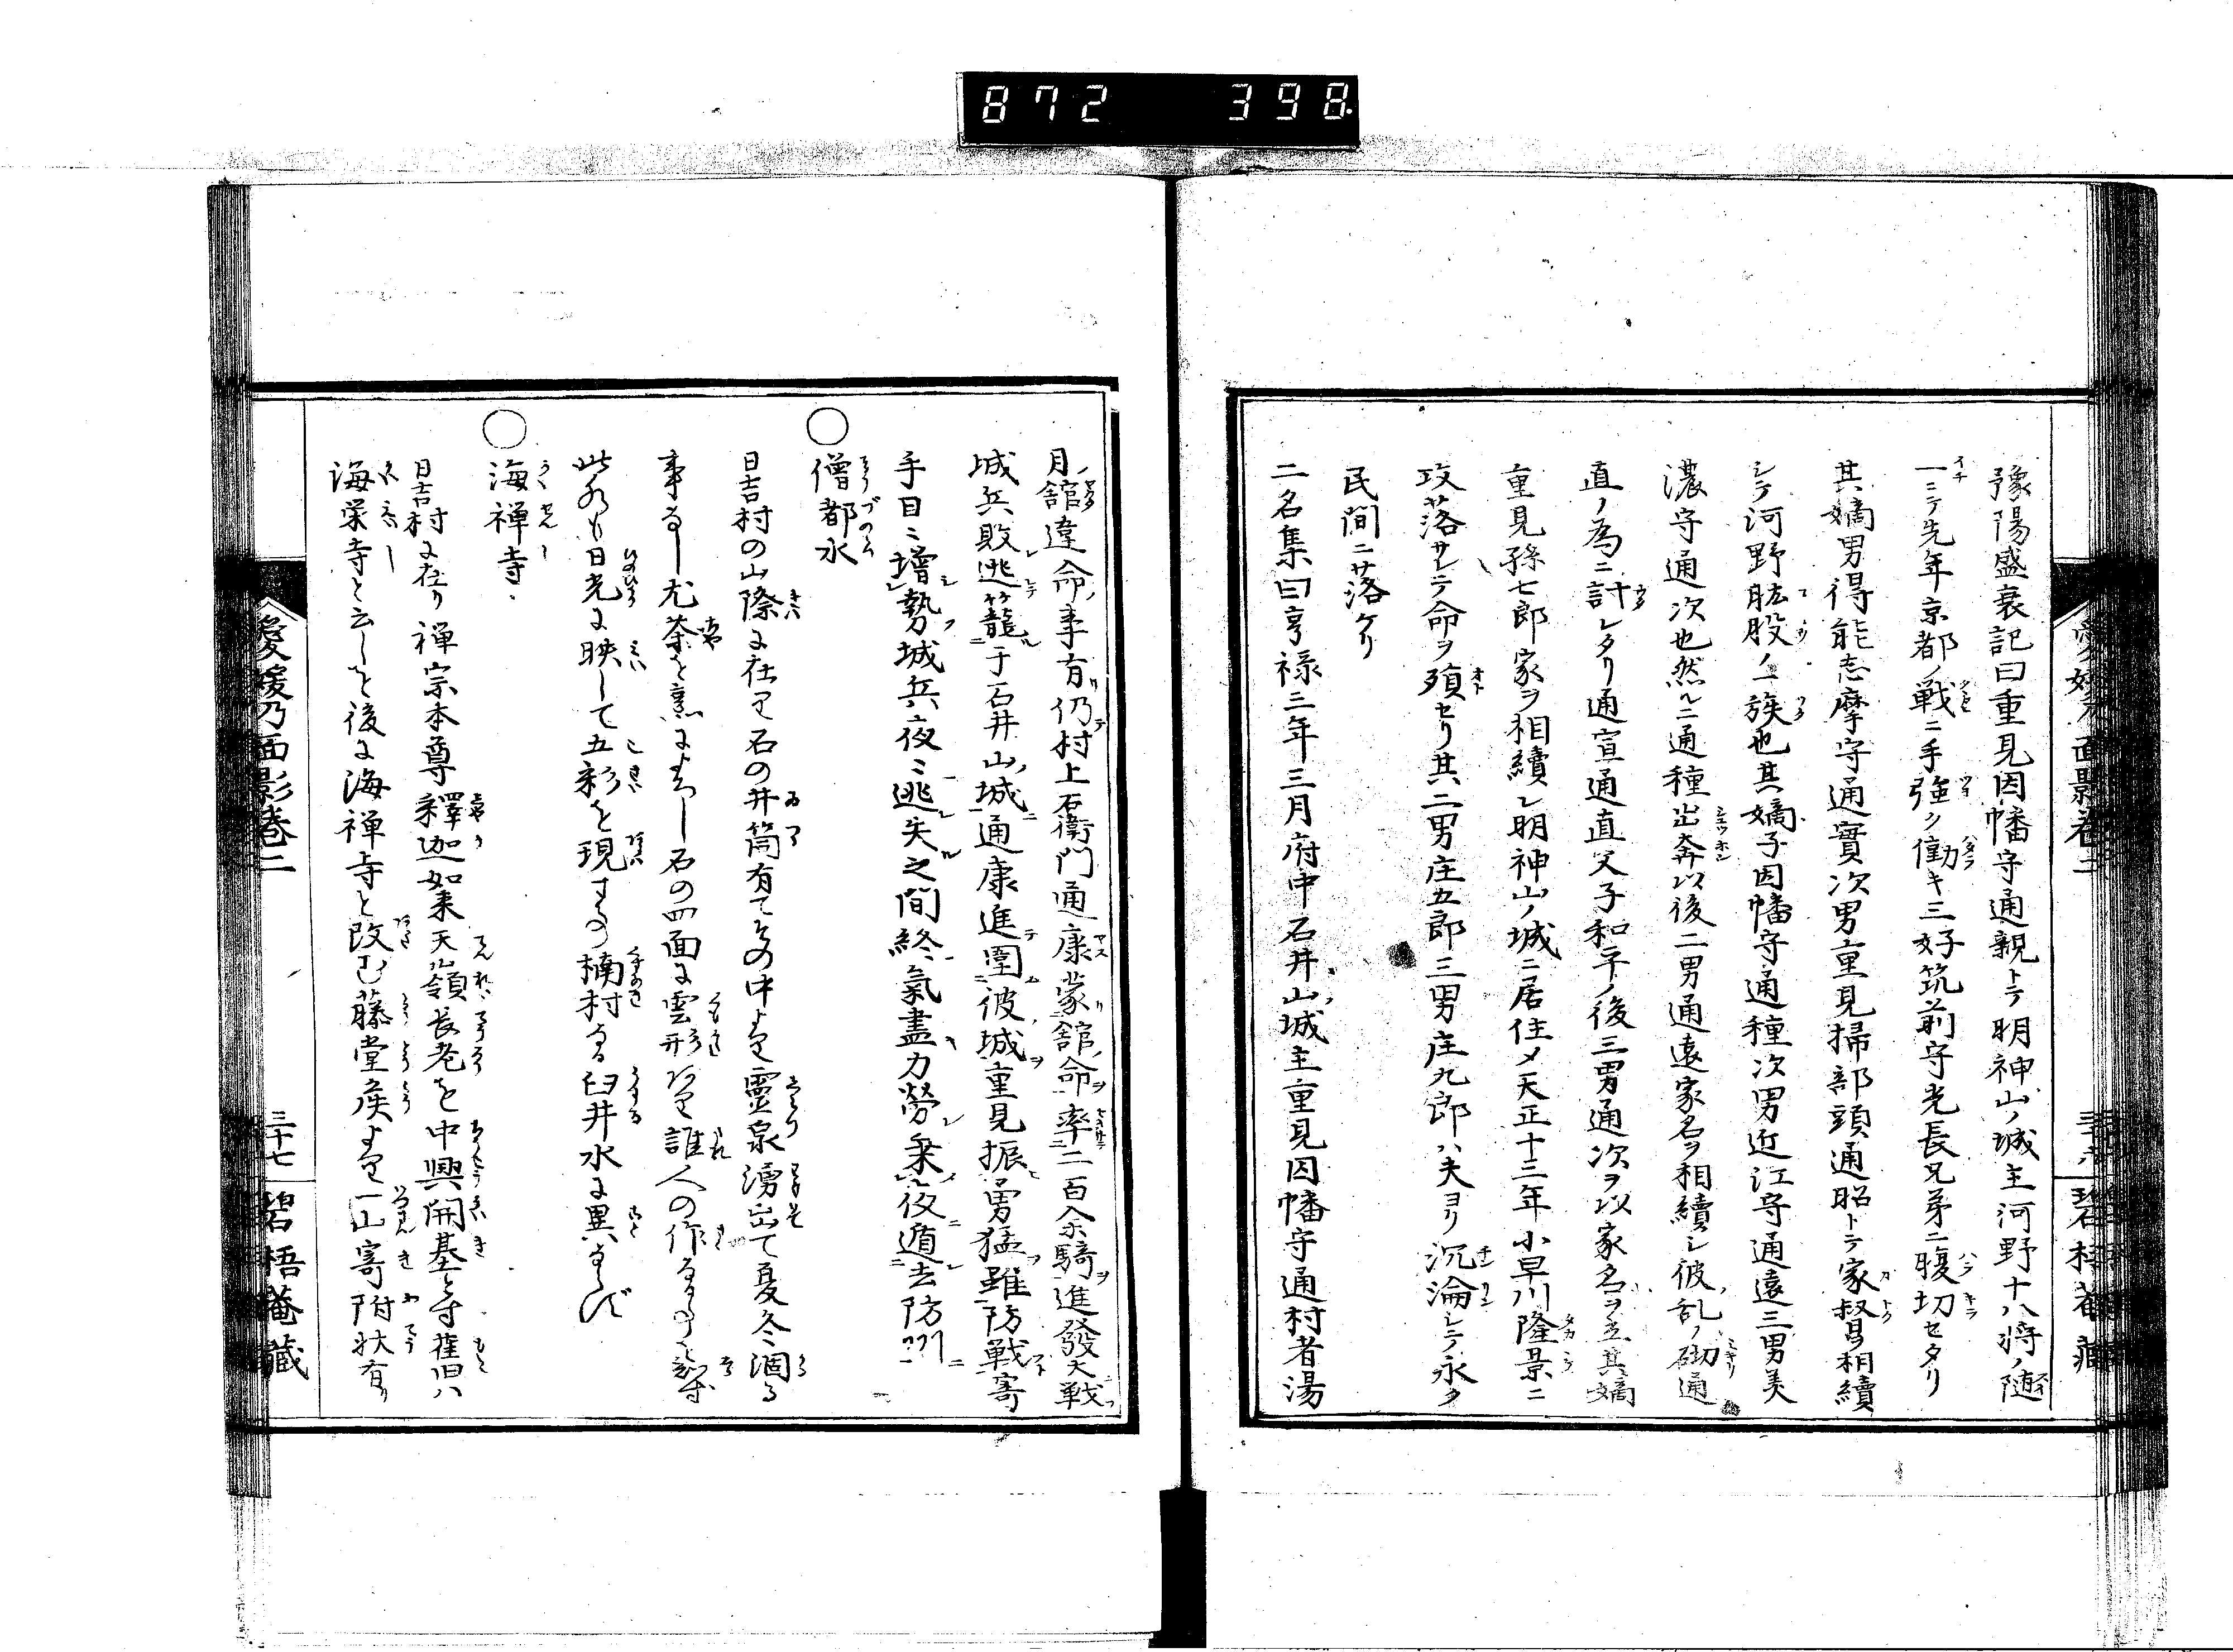 872 398
豫陽盛衰記曰重見因幡守通親トテ明神山ノ城主河野十八将ノ随
一ニテ先年京都ノ戦ニ手強ク働キ三好筑前守光長兄弟ニ腹切セタリ
其嫡男得能志摩守通實次男重見掃部頭通昭トテ家督相續
シテ河野肱股ノ一族也其嫡子因幡守通種次男近江守通遠三男美
濃守通次也然ルニ通種出奔以後二男通遠家名ヲ相續シ彼乱ノ砌通
直ノ為ニ討レタリ通宣通直父子和平ノ後三男通次ヲ以家名ヲ立其嫡
重見孫七郎家ヲ相續シ明神山ノ城ニ居住メ天正十三年小早川隆景ニ
攻落サレテ命ヲ殞セリ其二男庄五郎三男庄九郎ハ夫ヨリ沉淪シテ永ク
民間ニサ落ケリ
二名集曰亨禄三年三月府中石井山ノ城主重見因幡守通村者湯
月ノ舘違命ノ事有仍村上右衛門通康蒙舘ノ命率二百余騎進發大戦
城兵敗逃籠于石井山ノ城通康進圍彼城重見振勇猛雖防戦寄
手日ニ増勢城兵夜ニ逃失之間終氣盡力勞乗夜遁去防州
○僧都水
日吉村の山際に在り石の井筒有てその中より靈泉湧出て夏冬涸る
事なし尤茶を烹によろし石の四面に雲形あり誰人の作なるを
此水も日光に映して五彩を現するの楠村なる臼井水に異ならず
○海禅寺
日吉村に在り禅宗本尊釋迦如来天嶺長老を中興開基とす往旧ハ
海栄寺と云しを後に海禅寺と改む藤堂矦より一山寄附状有り
愛媛乃面影巻二
三十七
碧梧菴藏